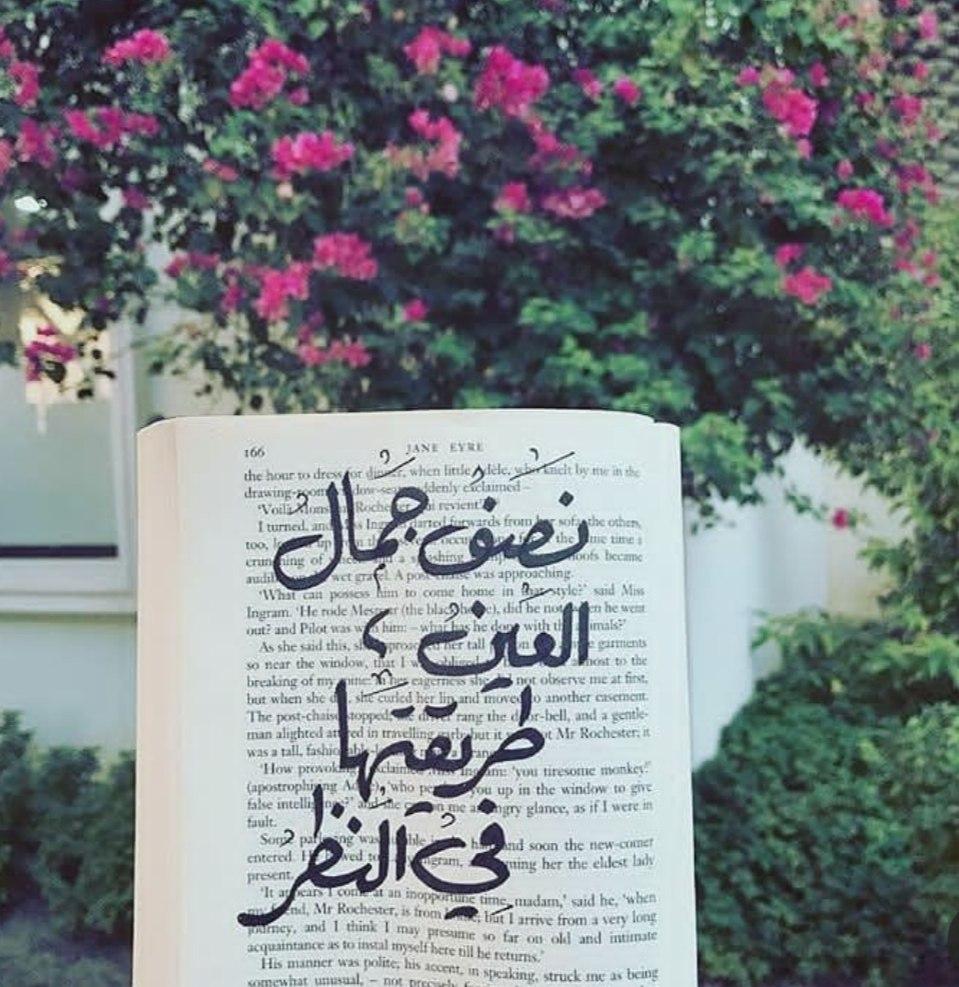 نصف جمال
العين ،
طريقتها
في النظر
166 JANE EYRE
the hour to dress for dinner, when little Adèle, who knelt by me in the
drawing-room suddenly exclaimed –
'Voilà Rochester revient'
I turned, and Miss Ingram darted forwards from her sofa: the others,
too, up from the time a
crunching of and a splashing hoofs became
audible wet gravel. A post-chaise was approaching.
'What can possess him to come home in that style?' said Miss
Ingram. 'He rode Mesrour (the black horse), did he not, when he went
out? and Pilot was with him: – what has he done with the animals?'
As she said this, she approached her tall garments
so near the window, that I was obliged almost to the
breaking of my spine: in her eagerness she not observe me at first,
but when she did, she curled her lip and moved to another casement.
The post-chaise stopped; the driver rang the door-bell, and a gentle-
man alighted attired in travelling garb; but it not Mr Rochester; it
was a tall, fashionable-looking
'How provoking exclaimed Miss Ingram: 'you tiresome monkey!'
(apostrophising 'who you up in the window to give
false intelligence?' and she on me angry glance, as if I were in
fault.
Some was and soon the new-comer
entered. He to Ingram, her the eldest lady
present.
'It appears I come at an inopportune time, madam,' said he, 'when
my friend, Mr Rochester, is from but I arrive from a very long
journey, and I think I may presume so far on old and intimate
acquaintance as to instal myself here till he returns.'
His manner was polite; his accent, in speaking, struck me as being
somewhat unusual, – not precisely